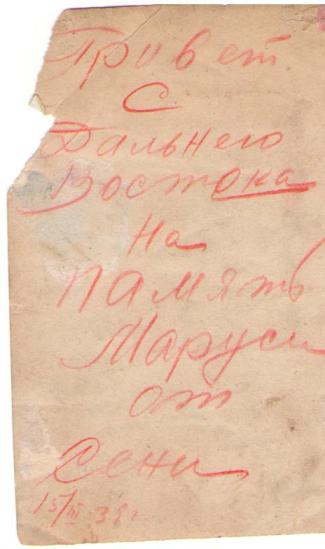 Привет
с
Дальнего
Востока
На
память
Маруси
от
Сени
15/III 39г